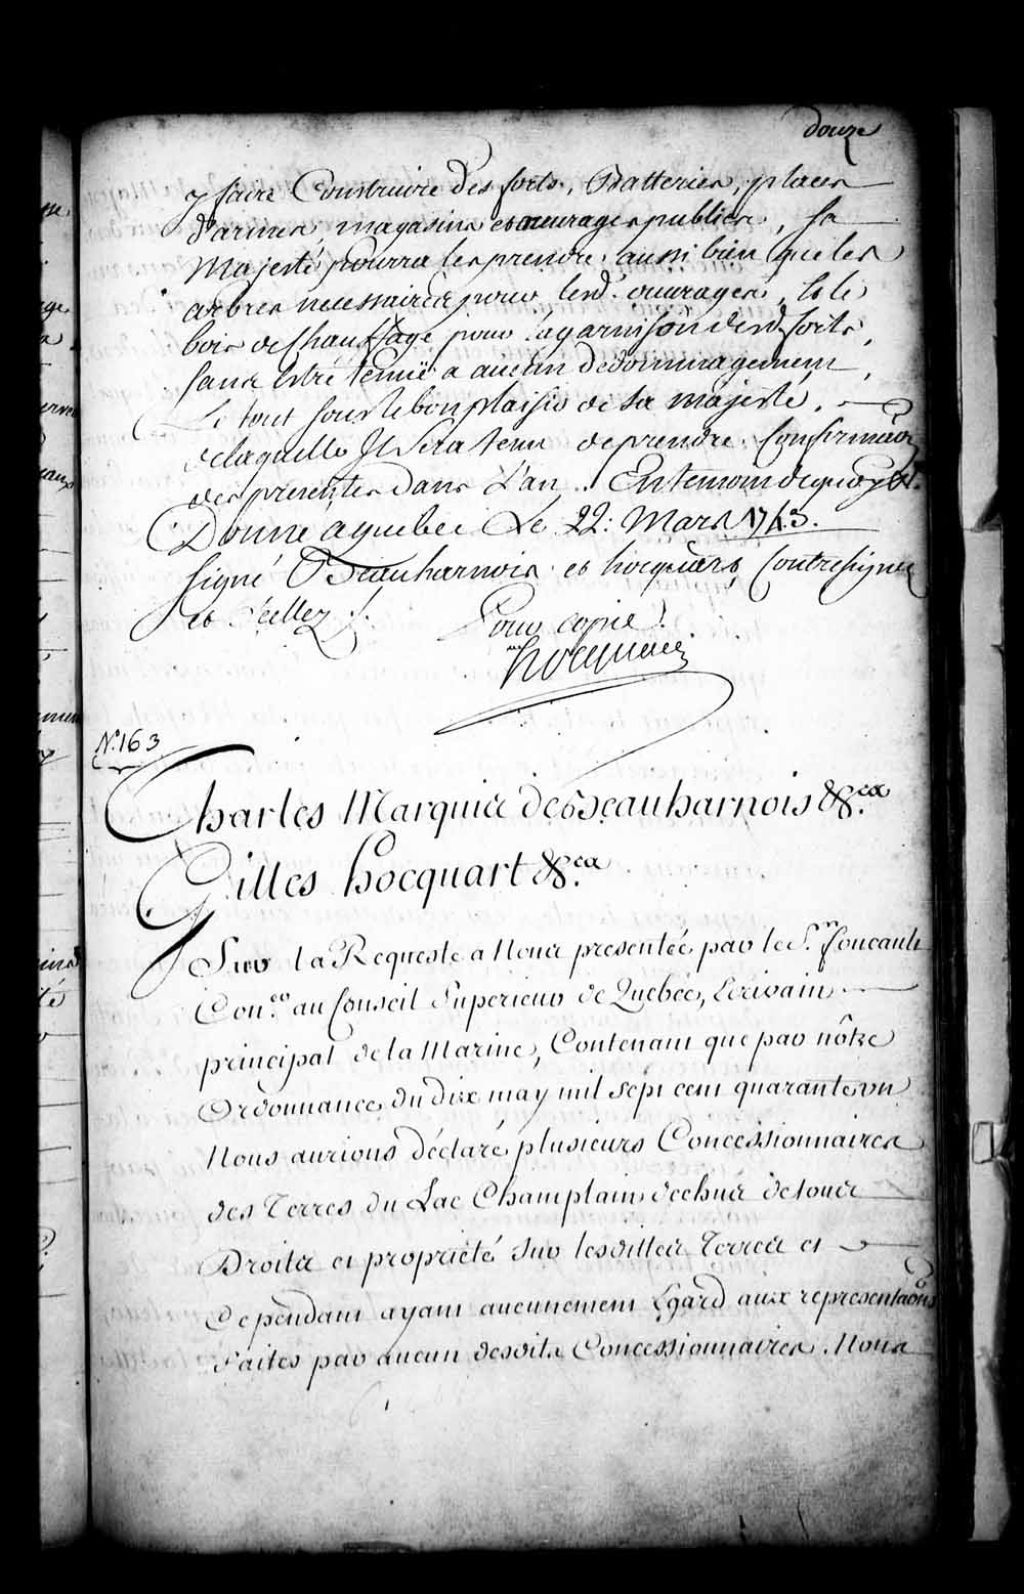 douze
y faire Construire des forts, Batteries, places
d'armes, magasins et ouvrages publics, Sa
Majesté pourra les prendre, aussi bien que les
arbres necessaires pour lesd. ouvrages, Et le
bois de Chauffage pour la garnison desd. forts,
sans Estre tenuë a aucun Dedommagement,
Le tout sous le bon plaisir de Sa Majesté,
de laquelle Il sera tenu de prendre Confirmaon
des presentes dans L'an. En temoin de quoy &a.
Donné a quebec Le 22: Mars 1743.
Signé Beauharnois et hocquart, Contresigné
et Scellez ./.
Pour copie.
hocquart
N.º 163
Charles Marquis de Beauharnois &.ca
Gilles hocquart &.ca
Sur la Requeste a Nous presentée par le S.r foucault
Con.er au Conseil Superieur de Quebec, Ecrivain
principal de la Marine, Contenant que par nôtre
Ordonnance du dix may mil sept cent quarante un
Nous aurions déclaré plusieurs Concessionnaires
des Terres du Lac Champlain dechus de tous
Droits et proprieté sur lesdittes Terres et
Cependant ayant aucunement Egard aux representaons
Faites par aucun desdits Concessionnaires. Nous